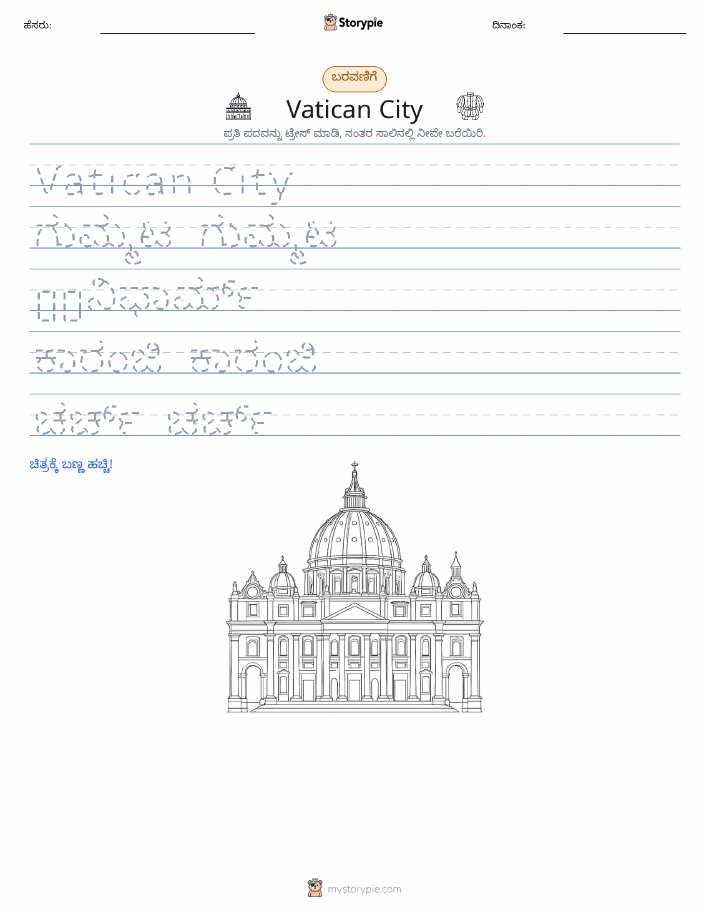 ಹೆಸರು:
Storypie
ದಿನಾಂಕ:
ಬರವಣಿಗೆ
Vatican City
ಪ್ರತಿ ಪದವನ್ನು ಟ್ರೇಸ್ ಮಾಡಿ, ನಂತರ ಸಾಲಿನಲ್ಲಿ ನೀವೇ ಬರೆಯಿರಿ.
Vatican City
ಗುಮ್ಮಟ ಗುಮ್ಮಟ
ಕಾರಂಜಿ ಕಾರಂಜಿ
ಚರ್ಚ್ ಚರ್ಚ್
ಚಿತ್ರಕ್ಕೆ ಬಣ್ಣ ಹಚ್ಚಿ!
mystorypie.com